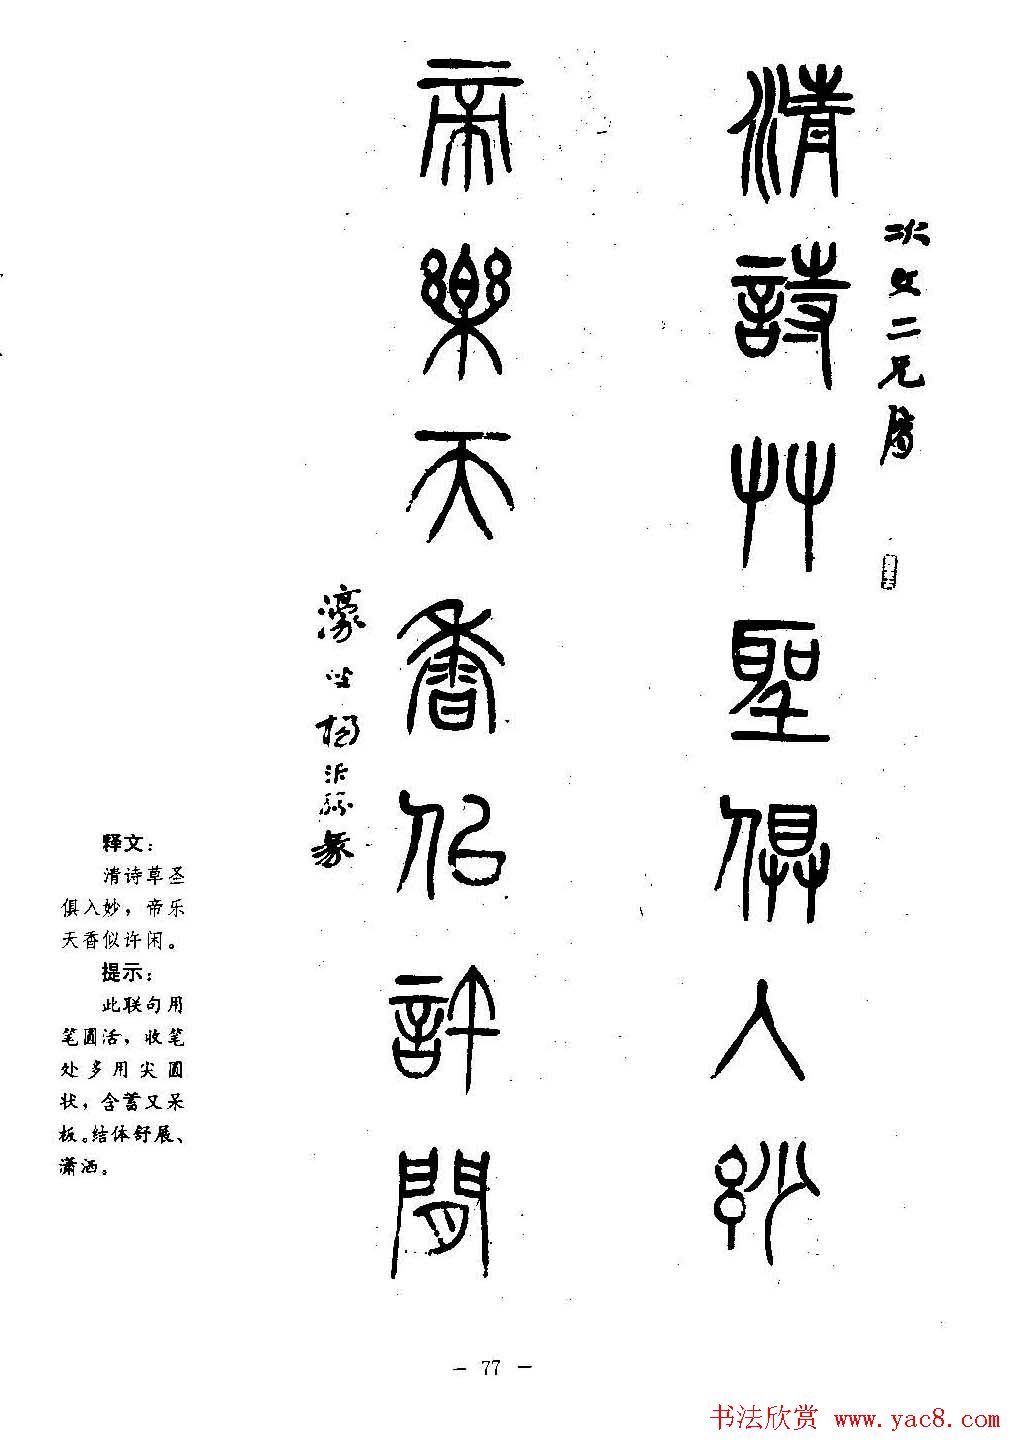 次文二兄属
清詩艸聖俱入紗
帝樂天香佀許閒
濠叟楊沂孫篆
释文：
清诗草圣
俱入妙，帝乐
天香似许闲。
提示：
此联句用
笔圆活，收笔
处多用尖圆
状，含蓄又呆
板。结体舒展、
潇洒。
- 77 -
书法欣赏 www.yac8.com